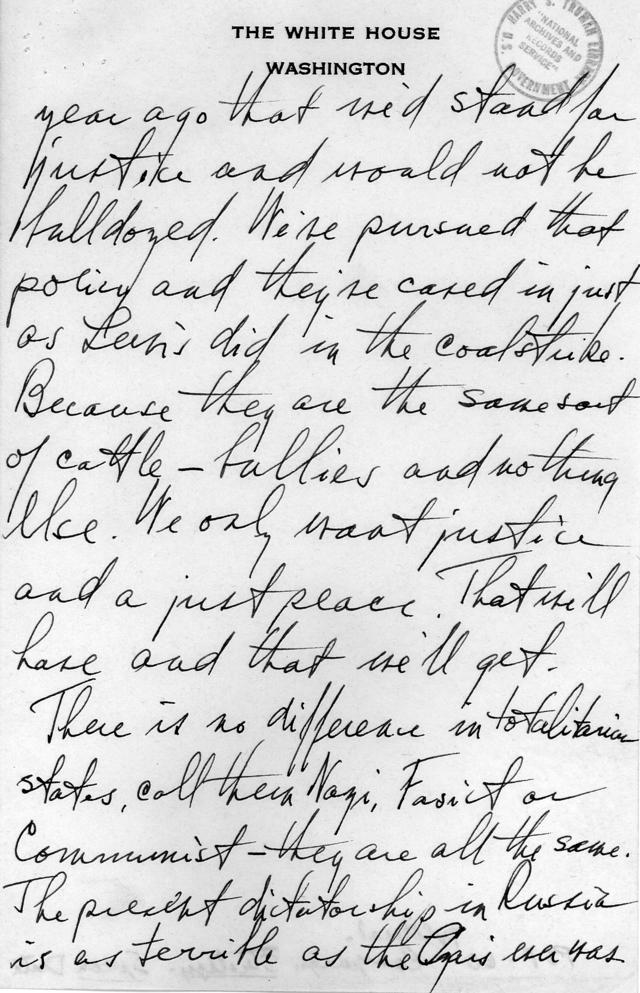 THE WHITE HOUSE
WASHINGTON
HARRY S. TRUMAN LIBRARY
"NATIONAL
ARCHIVES AND
RECORDS
SERVICE"
U.S. GOVERNMENT
year ago that we'd stand for
justice and would not be
bulldozed. We've pursued that
policy and they've caved in just
as Lewis did in the coal strike.
Because they are the same sort
of cattle – bullies and nothing
else. We only want justice
and a just peace. That will
have and that we'll get.
There is no difference in totalitarian
states, call them Nazi, Facist or
Communist – they are all the same.
The present dictatorship in Russia
is as terrible as the Czars ever was